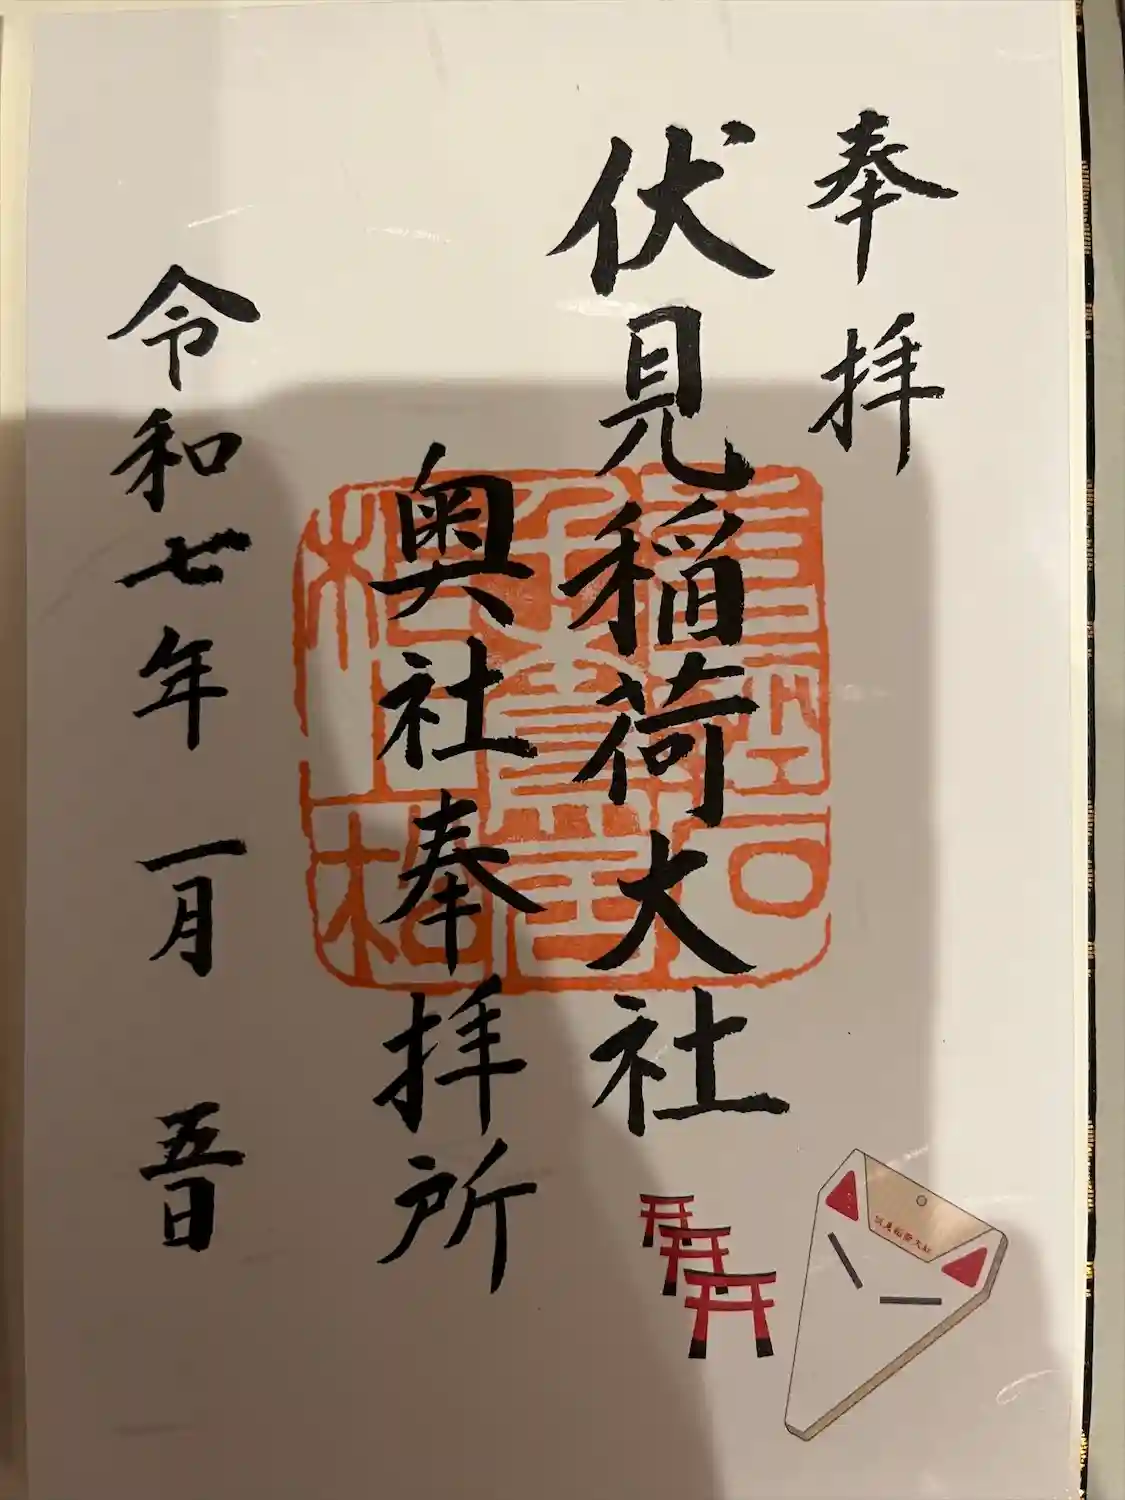 奉拝
伏見稲荷大社
奥社奉拝所
令和七年 一月 五日
伏見稲荷大社